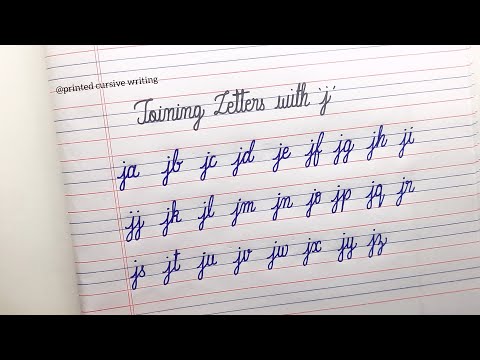 @printed cursive writing
Joining Letters with 'j'
ja jb jc jd je jf jg jh ji
jj jk jl jm jn jo jp jq jr
js jt ju jv jw jx jy jz